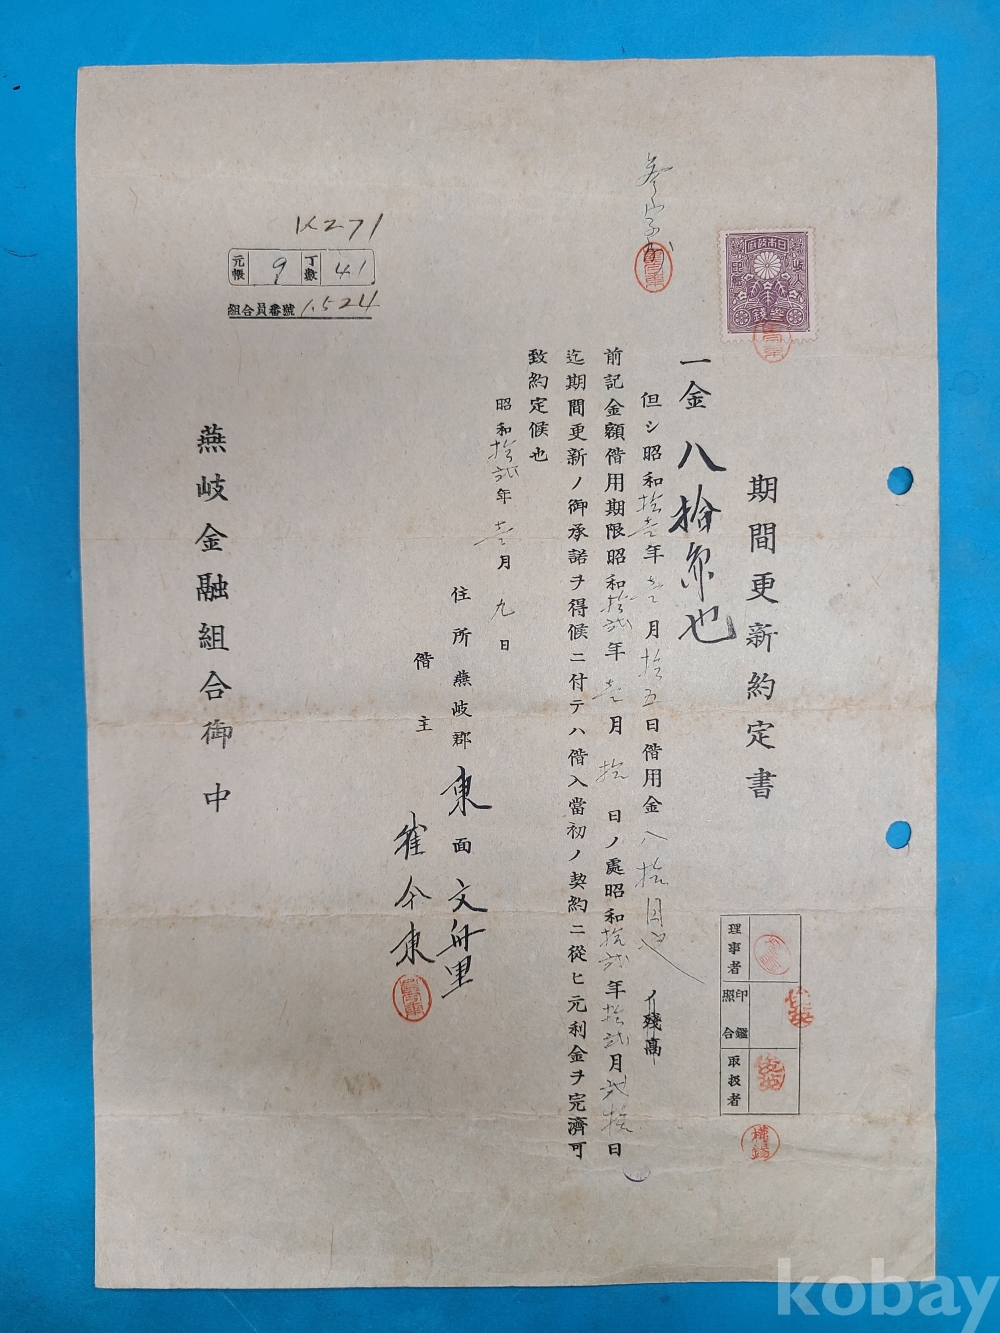 期間更新約定書
一金 八拾圓也
但シ昭和拾壹年壹月拾五日偕用金八拾圓也ノ殘高
前記金額偕用期限昭和拾貳年壹月拾日ノ處昭和拾貳年拾貳月貳拾日
迄期間更新ノ御承諾ヲ得候ニ付テハ偕入當初ノ契約ニ從ヒ元利金ヲ完濟可
致約定候也
昭和拾貳年壹月九日
住所 燕岐郡東面文舟里
偕主 崔今東
燕岐金融組合御中
K271
元帳 9 丁數 41
組合員番號 1.524
參字
日本政府
收入印紙
參錢
理事者
印鑑照合
取扱者
kobay